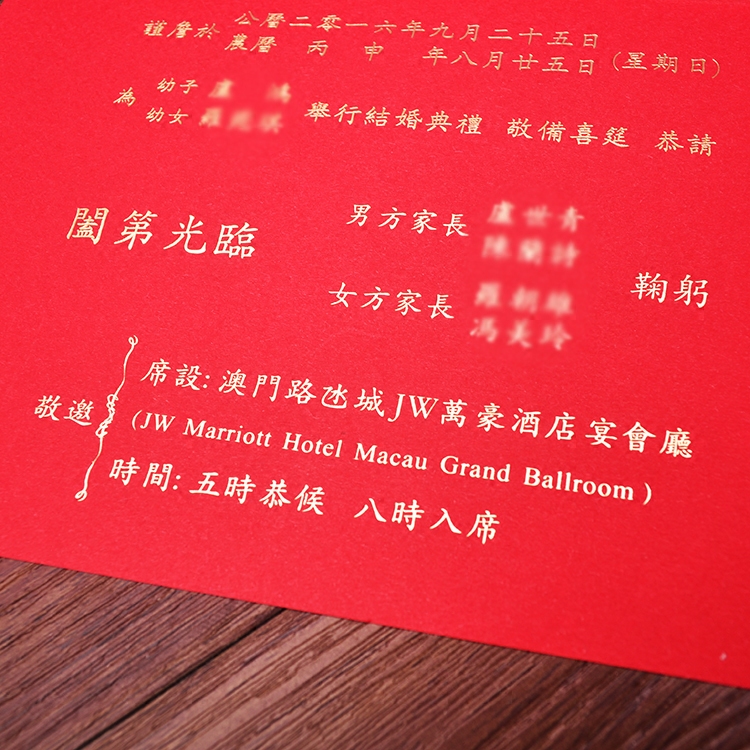 謹詹於 公曆二零一六年九月二十五日
農曆 丙 申 年八月廿五日 (星期日)
為 幼子
幼女 舉行結婚典禮 敬備喜筵 恭請
闔第光臨
男方家長
女方家長
鞠躬
敬邀
席設: 澳門路氹城JW萬豪酒店宴會廳
(JW Marriott Hotel Macau Grand Ballroom)
時間: 五時恭候 八時入席